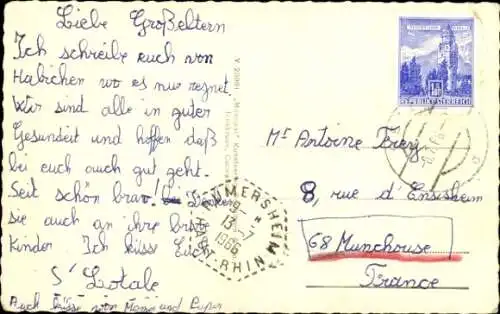 Liebe Großeltern
Ich schreibe euch von
Habichen wo es nur regnet
Wir sind alle in guter
Gesundeit und hoffen daß
bei euch auch gut geht.
Seit schön brav! Denken
sie auch an ihre
Kinder Ich küsse Euch
S' Lotale
Auch küsse von Mama und
REPUBLIK ÖSTERREICH
Mr Antoine Frey
8, rue d'Ensisheim
68 Munchouse
France
MERSHEIM
19-
13-7
1966
HAUT-RHIN